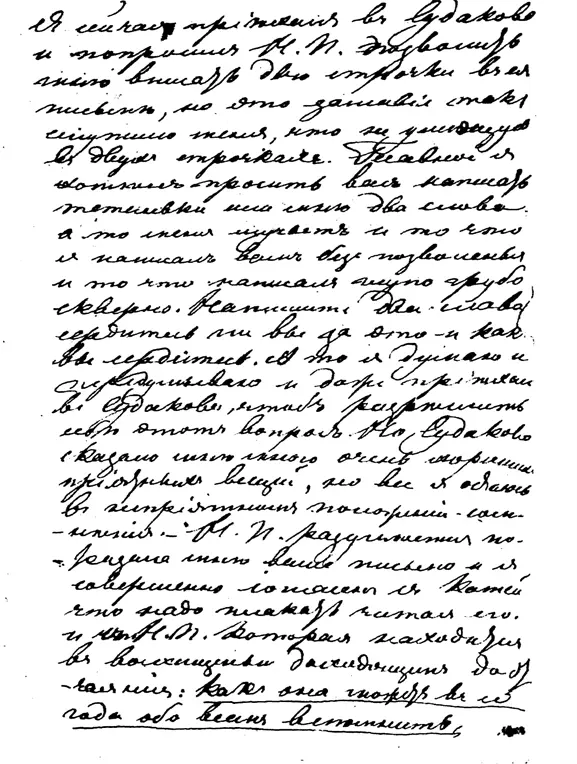 Я сейчас пріѣхалъ въ Судаково
и попросилъ Н. П. позволить
мнѣ вписать двѣ строчки въ ея
письмо, но это
что не
въ двухъ строчкахъ. Главное я
хотѣлъ просить васъ написать
или мнѣ два слова.
а то меня мучаетъ и то что
я написалъ вамъ безъ позволенья
и то что написалъ глупо грубо
скверно. Напишите два слова
сердитесь ли вы за это и какъ
вы сердитесь. А то я думаю и
передумываю и даже пріѣхалъ
въ Судаково, чтобъ разрѣшить
себѣ этотъ вопросъ. Но, Судаково
сказало мнѣ много очень хорошихъ
пріятныхъ вещей, но все я остаюсь
въ непріятномъ положеніи сом-
-нѣнія. — Н. П. по-
-казала мнѣ ваше письмо и я
совершенно согласенъ съ Женей
что надо плакать читая его.
и съ Н. П. которая находится
въ восхищеньи доходящимъ до от-
-чаянія: какъ она можетъ въ ея
года обо всемъ вспомнить,